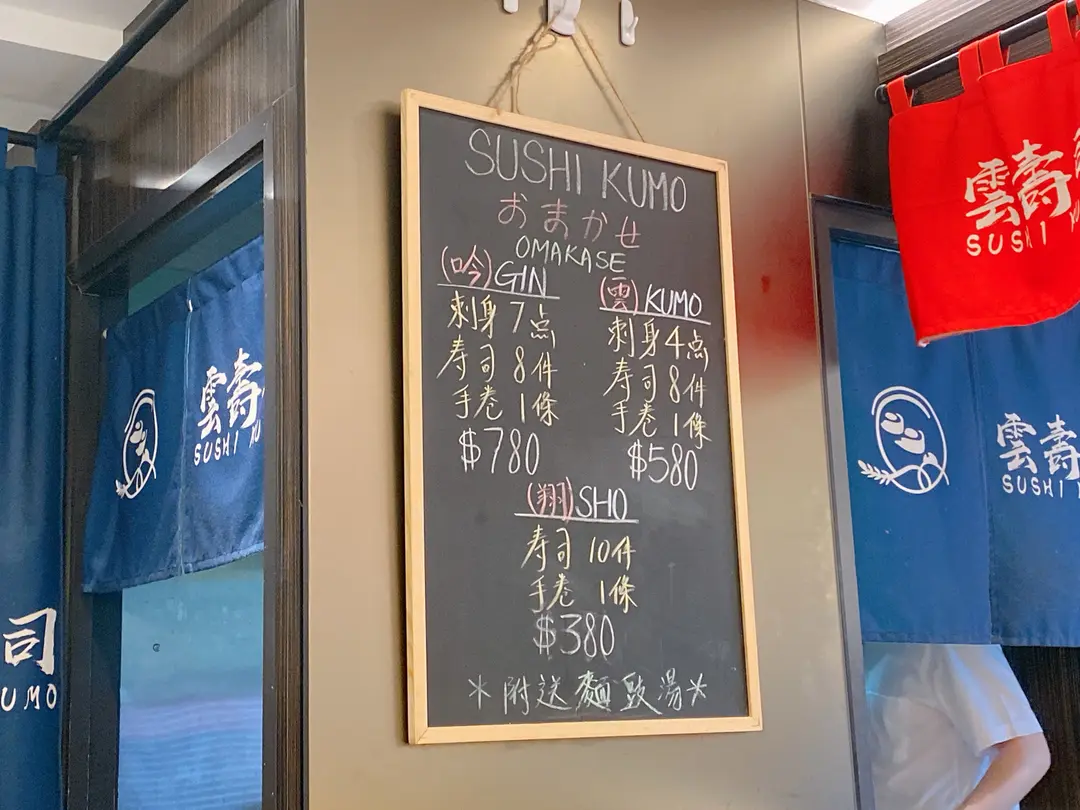 SUSHI KUMO
おまかせ
OMAKASE
(吟)GIN
刺身 7点
寿司 8件
手卷 1條
$780
(雲)KUMO
刺身 4点
寿司 8件
手卷 1條
$580
(翔)SHO
寿司 10件
手卷 1條
$380
*附送麵豉湯*
雲壽
SUSHI
司
UMO
雲壽
SUSHI
雲壽
SUSHI